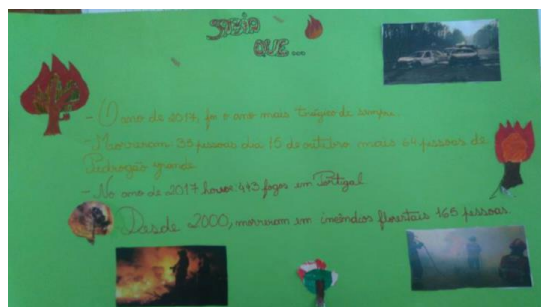 SABIA
QUE...
- O ano de 2017, foi o ano mais trágico de sempre
- Morreram 35 pessoas dia 15 de outubro mais 64 pessoas de
Pedrogão grande
- No ano de 2017 houve: 443 fogos em Portugal
Dasde 2000, morreram em incêndios florestais 165 pessoas